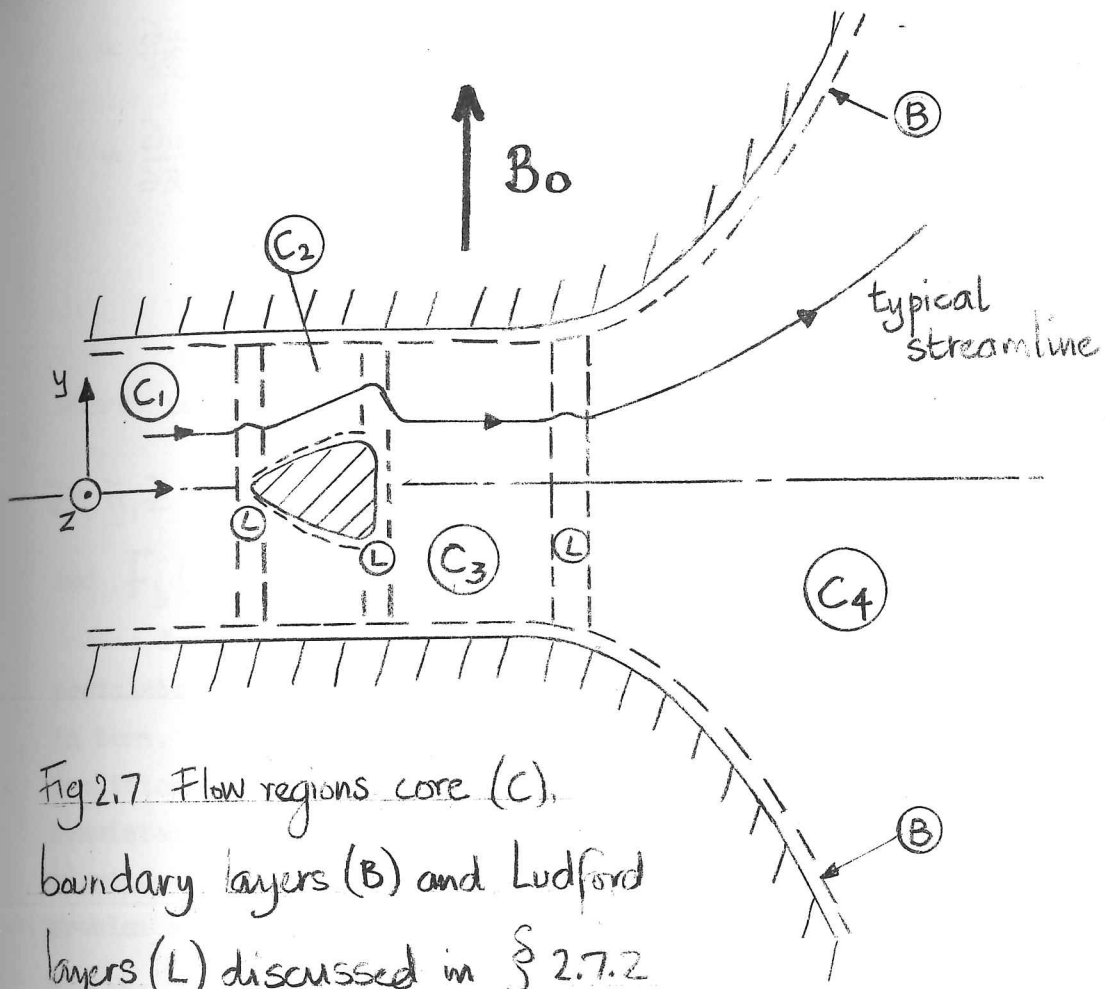 B
B₀
C₂
typical
streamline
y
C₁
z
L
L
C₃
L
C₄
B
Fig 2.7 Flow regions core (C),
boundary layers (B) and Ludford
layers (L) discussed in § 2.7.2